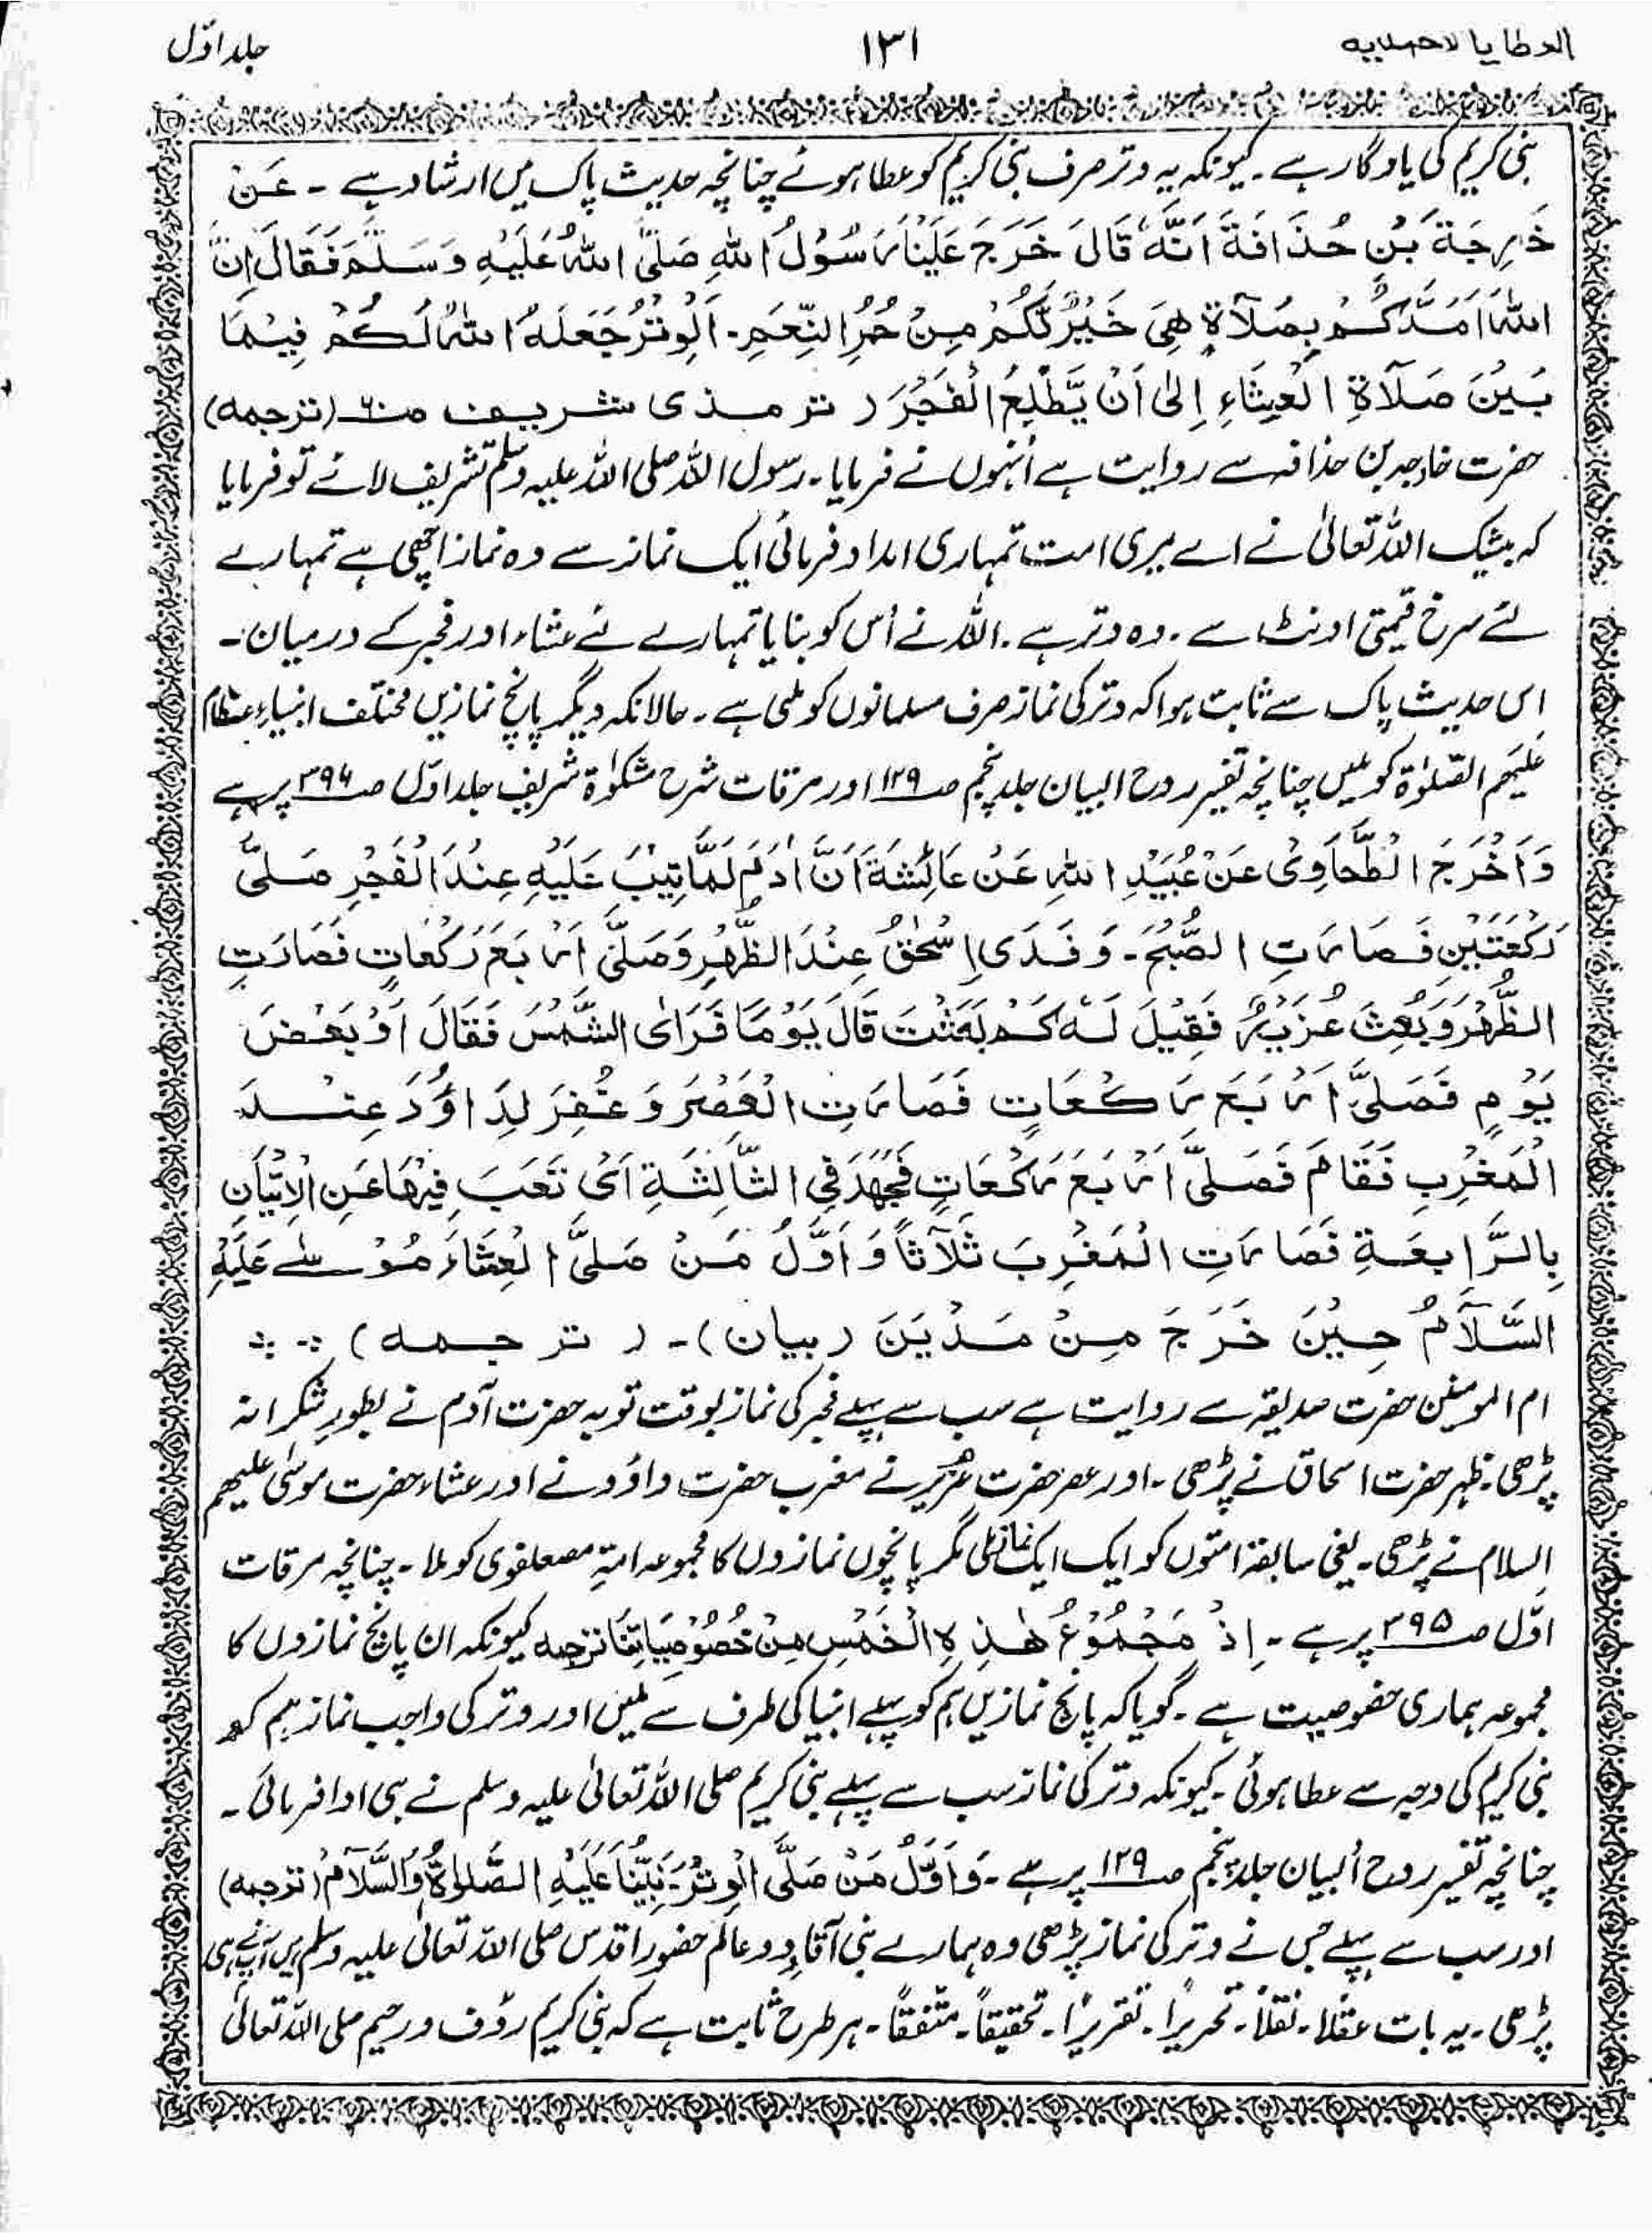 العطایا الاحمدیہ ۱۳۱ جلد اوّل
نبی کریم کی یادگار ہے ۔ کیونکہ یہ وتر صرف نبی کریم کو عطا ہوئے چنانچہ حدیث پاک میں ارشاد ہے ۔ عَنْ
خَارِجَةَ بْنِ حُذَافَةَ اَنَّهٗ قَالَ خَرَجَ عَلَيْنَا رَسُوْلُ اللهِ صَلَّى اللهُ عَلَيْهِ وَسَلَّمَ فَقَالَ اِنَّ
اللهَ اَمَدَّكُمْ بِصَلَآةٍ هِيَ خَيْرٌ لَّكُمْ مِنْ حُمُرِ النِّعَمِ ۔ اَلْوِتْرُ جَعَلَهُ اللهُ لَكُمْ فِيْمَا
بَيْنَ صَلَآةِ الْعِشَاءِ اِلٰى اَنْ يَّطْلِعُ الْفَجْرَ ( ترمذی شریف صـ۶۰ (ترجمہ)
حضرت خارجہ بن حذافہ سے روایت ہے اُنہوں نے فرمایا ۔ رسول اللہ صلی اللہ علیہ وسلم تشریف لائے تو فرمایا
کہ بیشک اللہ تعالیٰ نے اے میری امت تمہاری امداد فرمائی ایک نماز سے وہ نماز اچھی ہے تمہارے
لئے سرخ قیمتی اونٹ سے ۔ وہ وتر ہے ۔ اللہ نے اُس کو بنایا تمہارے لئے عشاء اور فجر کے درمیان ۔
اِس حدیث پاک سے ثابت ہوا کہ وتر کی نماز صرف مسلمانوں کو ملی ہے ۔ حالانکہ دیگر پانچ نمازیں مختلف انبیاءِ عظام
علیہم الصّلوٰۃ کو ملیں چنانچہ تفسیر روح البیان جلد پنجم صـ۱۲۹ اور مرقات شرح مشکوٰۃ شریف جلد اوّل صـ۳۹۴ پر ہے
وَاَخْرَجَ الطَّحَاوِیْ عَنْ عُبَيْدِ اللهِ عَنْ عَائِشَةَ اَنَّ اٰدَمَ لَمَّا تِيْبَ عَلَيْهِ عِنْدَ الْفَجْرِ صَلَّى
رَكْعَتَيْنِ فَصَارَتِ الصُّبْحُ ۔ وَفَدَى اِسْحٰقُ عِنْدَ الظُّهْرِ وَصَلَّى اَرْبَعَ رَكْعَاتٍ فَصَارَتِ
الظُّهْرُ وَبُعِثَ عُزَيْرٌ فَقِيْلَ لَهٗ كَمْ لَبِثْتَ قَالَ يَوْمًا فَرَاٰى الشَّمْسَ فَقَالَ اَوْ بَعْضَ
يَوْمٍ فَصَلَّى اَرْبَعَ رَكْعَاتٍ فَصَارَتِ الْعَصْرَ وَغُفِرَ لِدَاؤُدَ عِنْدَ
الْمَغْرِبِ فَقَامَ فَصَلَّى اَرْبَعَ رَكْعَاتٍ فَجَهَدَ فِي الثَّالِثَةِ اَىْ تَعَبَ فِيْهَا عَنِ الْاِتْيَانِ
بِالرَّابِعَةِ فَصَارَتِ الْمَغْرِبَ ثَلَاثاً وَاَوَّلُ مَنْ صَلَّى الْعِشَاءَ مُوْسٰے عَلَيْهِ
السَّلَآمُ حِيْنَ خَرَجَ مِنْ مَدْيَنَ (بیان) ۔ ( ترجمہ )
ام المومنین حضرت صدیقہ سے روایت ہے سب سے پہلے فجر کی نماز بوقت توبہ حضرت آدم نے بطورِ شکرانہ
پڑھی ۔ ظہر حضرت اسحاق نے پڑھی ۔ اور عصر حضرت عُزیر نے مغرب حضرت داؤد نے اور عشاء حضرت موسٰی علیہم
السلام نے پڑھی ۔ یعنی سابقہ امتوں کو ایک ایک نماز ملی مگر پانچوں نمازوں کا مجموعہ امتِ مصطفوی کو ملا ۔ چنانچہ مرقات
اوّل صـ۳۹۵ پر ہے ۔ اِذْ مَجْمُوْعُ هٰذِهِ الْخَمْسِ مِنْ خُصُوْصِيَاتِنَا ترجمہ کیونکہ ان پانچ نمازوں کا
مجموعہ ہماری خصوصیت ہے ۔ گویا کہ پانچ نمازیں ہم کو پہلے انبیا کی طرف سے ملیں اور وتر کی واجب نماز ہم کو
نبی کریم کی وجہ سے عطا ہوئی ۔ کیونکہ وتر کی نماز سب سے پہلے نبی کریم صلی اللہ تعالیٰ علیہ وسلم نے ہی ادا فرمائی ۔
چنانچہ تفسیر روح البیان جلد پنجم صـ۱۲۹ پر ہے ۔ وَاَوَّلُ مَنْ صَلَّى الْوِتْرَ نَبِيُّنَا عَلَيْهِ الصَّلوٰةُ وَالسَّلَآمُ (ترجمہ)
اور سب سے پہلے جس نے وتر کی نماز پڑھی وہ ہمارے نبی آقاءِ دو عالم حضورِ اقدس صلی اللہ تعالیٰ علیہ وسلم ہیں آپ نے ہی
پڑھی ۔ یہ بات عقلاً ۔ نقلاً ۔ تحریرًا ۔ تقریرًا ۔ تحقیقاً ۔ متفقًا ۔ ہر طرح ثابت ہے کہ نبی کریم رؤف و رحیم صلی اللہ تعالیٰ